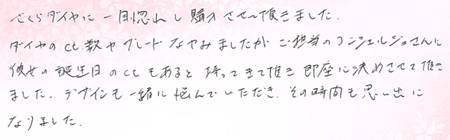 さくらダイヤに一目惚れし購入させて頂きました。
ダイヤのct数やグレードなやみましたが ご担当のコンシェルジュさんに
彼女の誕生日のctもあると持ってきて頂き即座に決めさせて頂き
ました。デザインも一緒に悩んでいただき、その時間も思い出に
なりました。